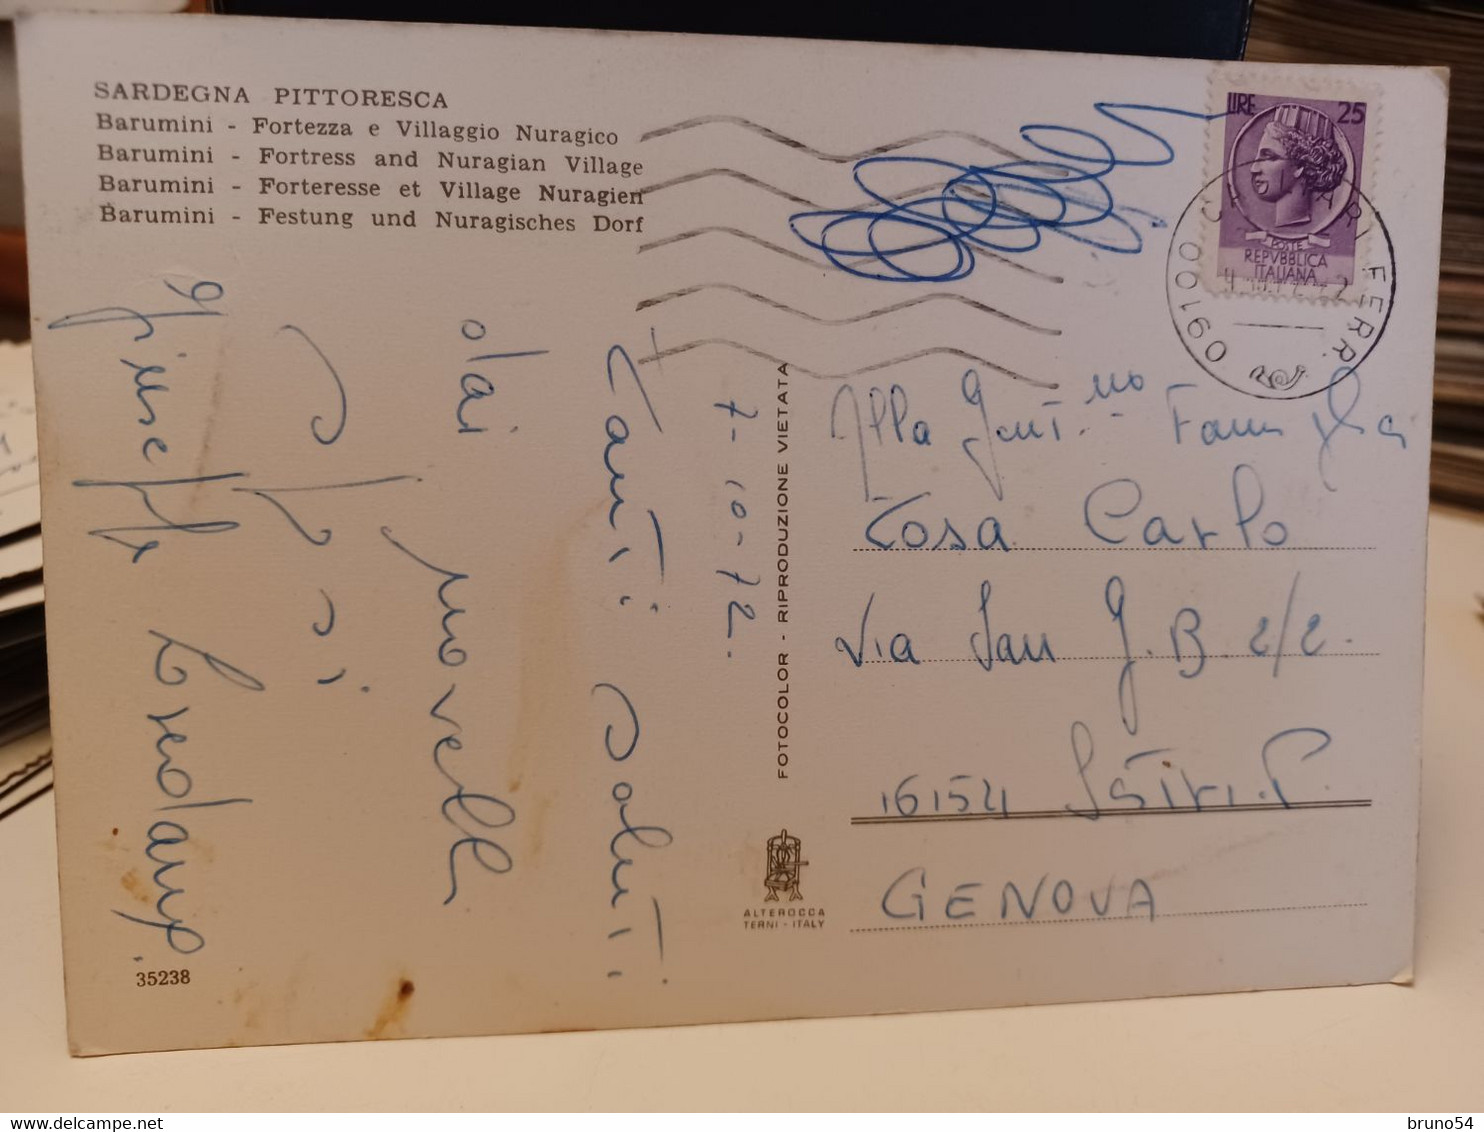 SARDEGNA PITTORESCA
Barumini - Fortezza e Villaggio Nuragico
Barumini - Fortress and Nuragian Village
Barumini - Forteresse et Village Nuragien
Barumini - Festung und Nuragisches Dorf
LIRE 25
POSTE
REPVBBLICA
ITALIANA
09100 FERR.
7-10-72.
Tanti saluti
dai novelli
Sposi
Giuseppe
35238
FOTOCOLOR - RIPRODUZIONE VIETATA
ALTEROCCA
TERNI - ITALY
Alla Gent.ma Famiglia
Tosa Carlo
Via San G.B. 2/2.
16154 Sestri. P.
GENOVA
delcampe.net
bruno54